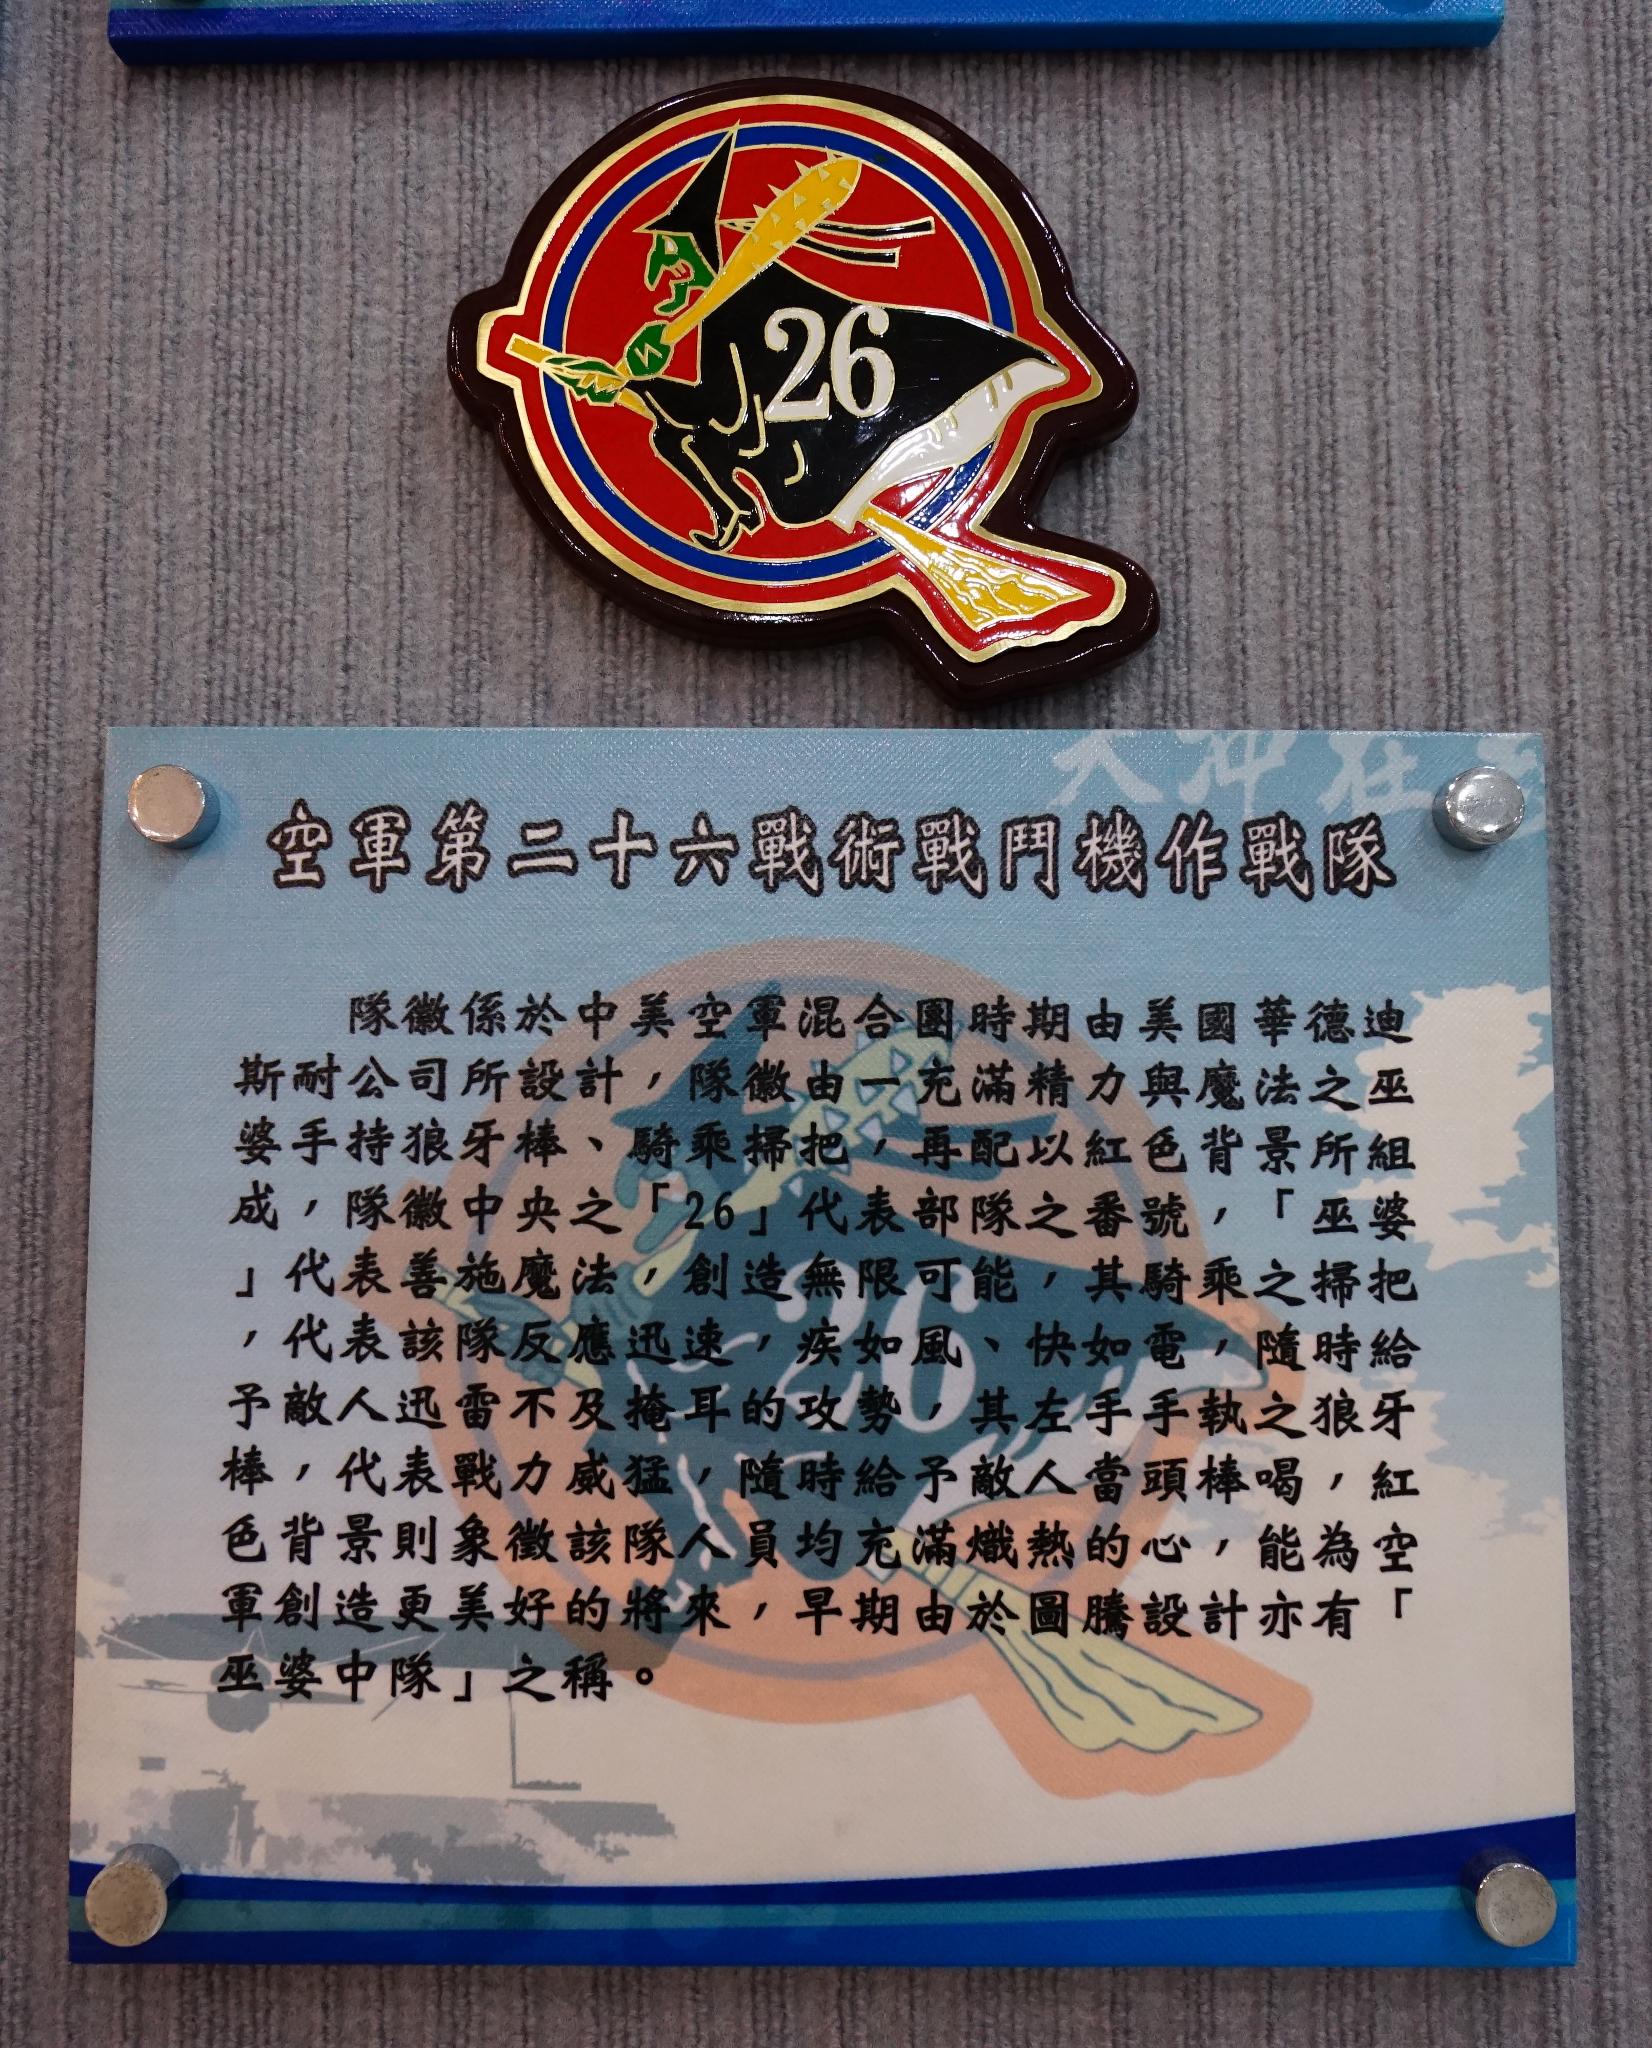 26
空軍第二十六戰術戰鬥機作戰隊
隊徽係於中美空軍混合團時期由美國華德迪
斯耐公司所設計，隊徽由一充滿精力與魔法之巫
婆手持狼牙棒、騎乘掃把，再配以紅色背景所組
成，隊徽中央之「26」代表部隊之番號，「巫婆
」代表善施魔法，創造無限可能，其騎乘之掃把
，代表該隊反應迅速，疾如風、快如電，隨時給
予敵人迅雷不及掩耳的攻勢，其左手手執之狼牙
棒，代表戰力威猛，隨時給予敵人當頭棒喝，紅
色背景則象徵該隊人員均充滿熾熱的心，能為空
軍創造更美好的將來，早期由於圖騰設計亦有「
巫婆中隊」之稱。
26